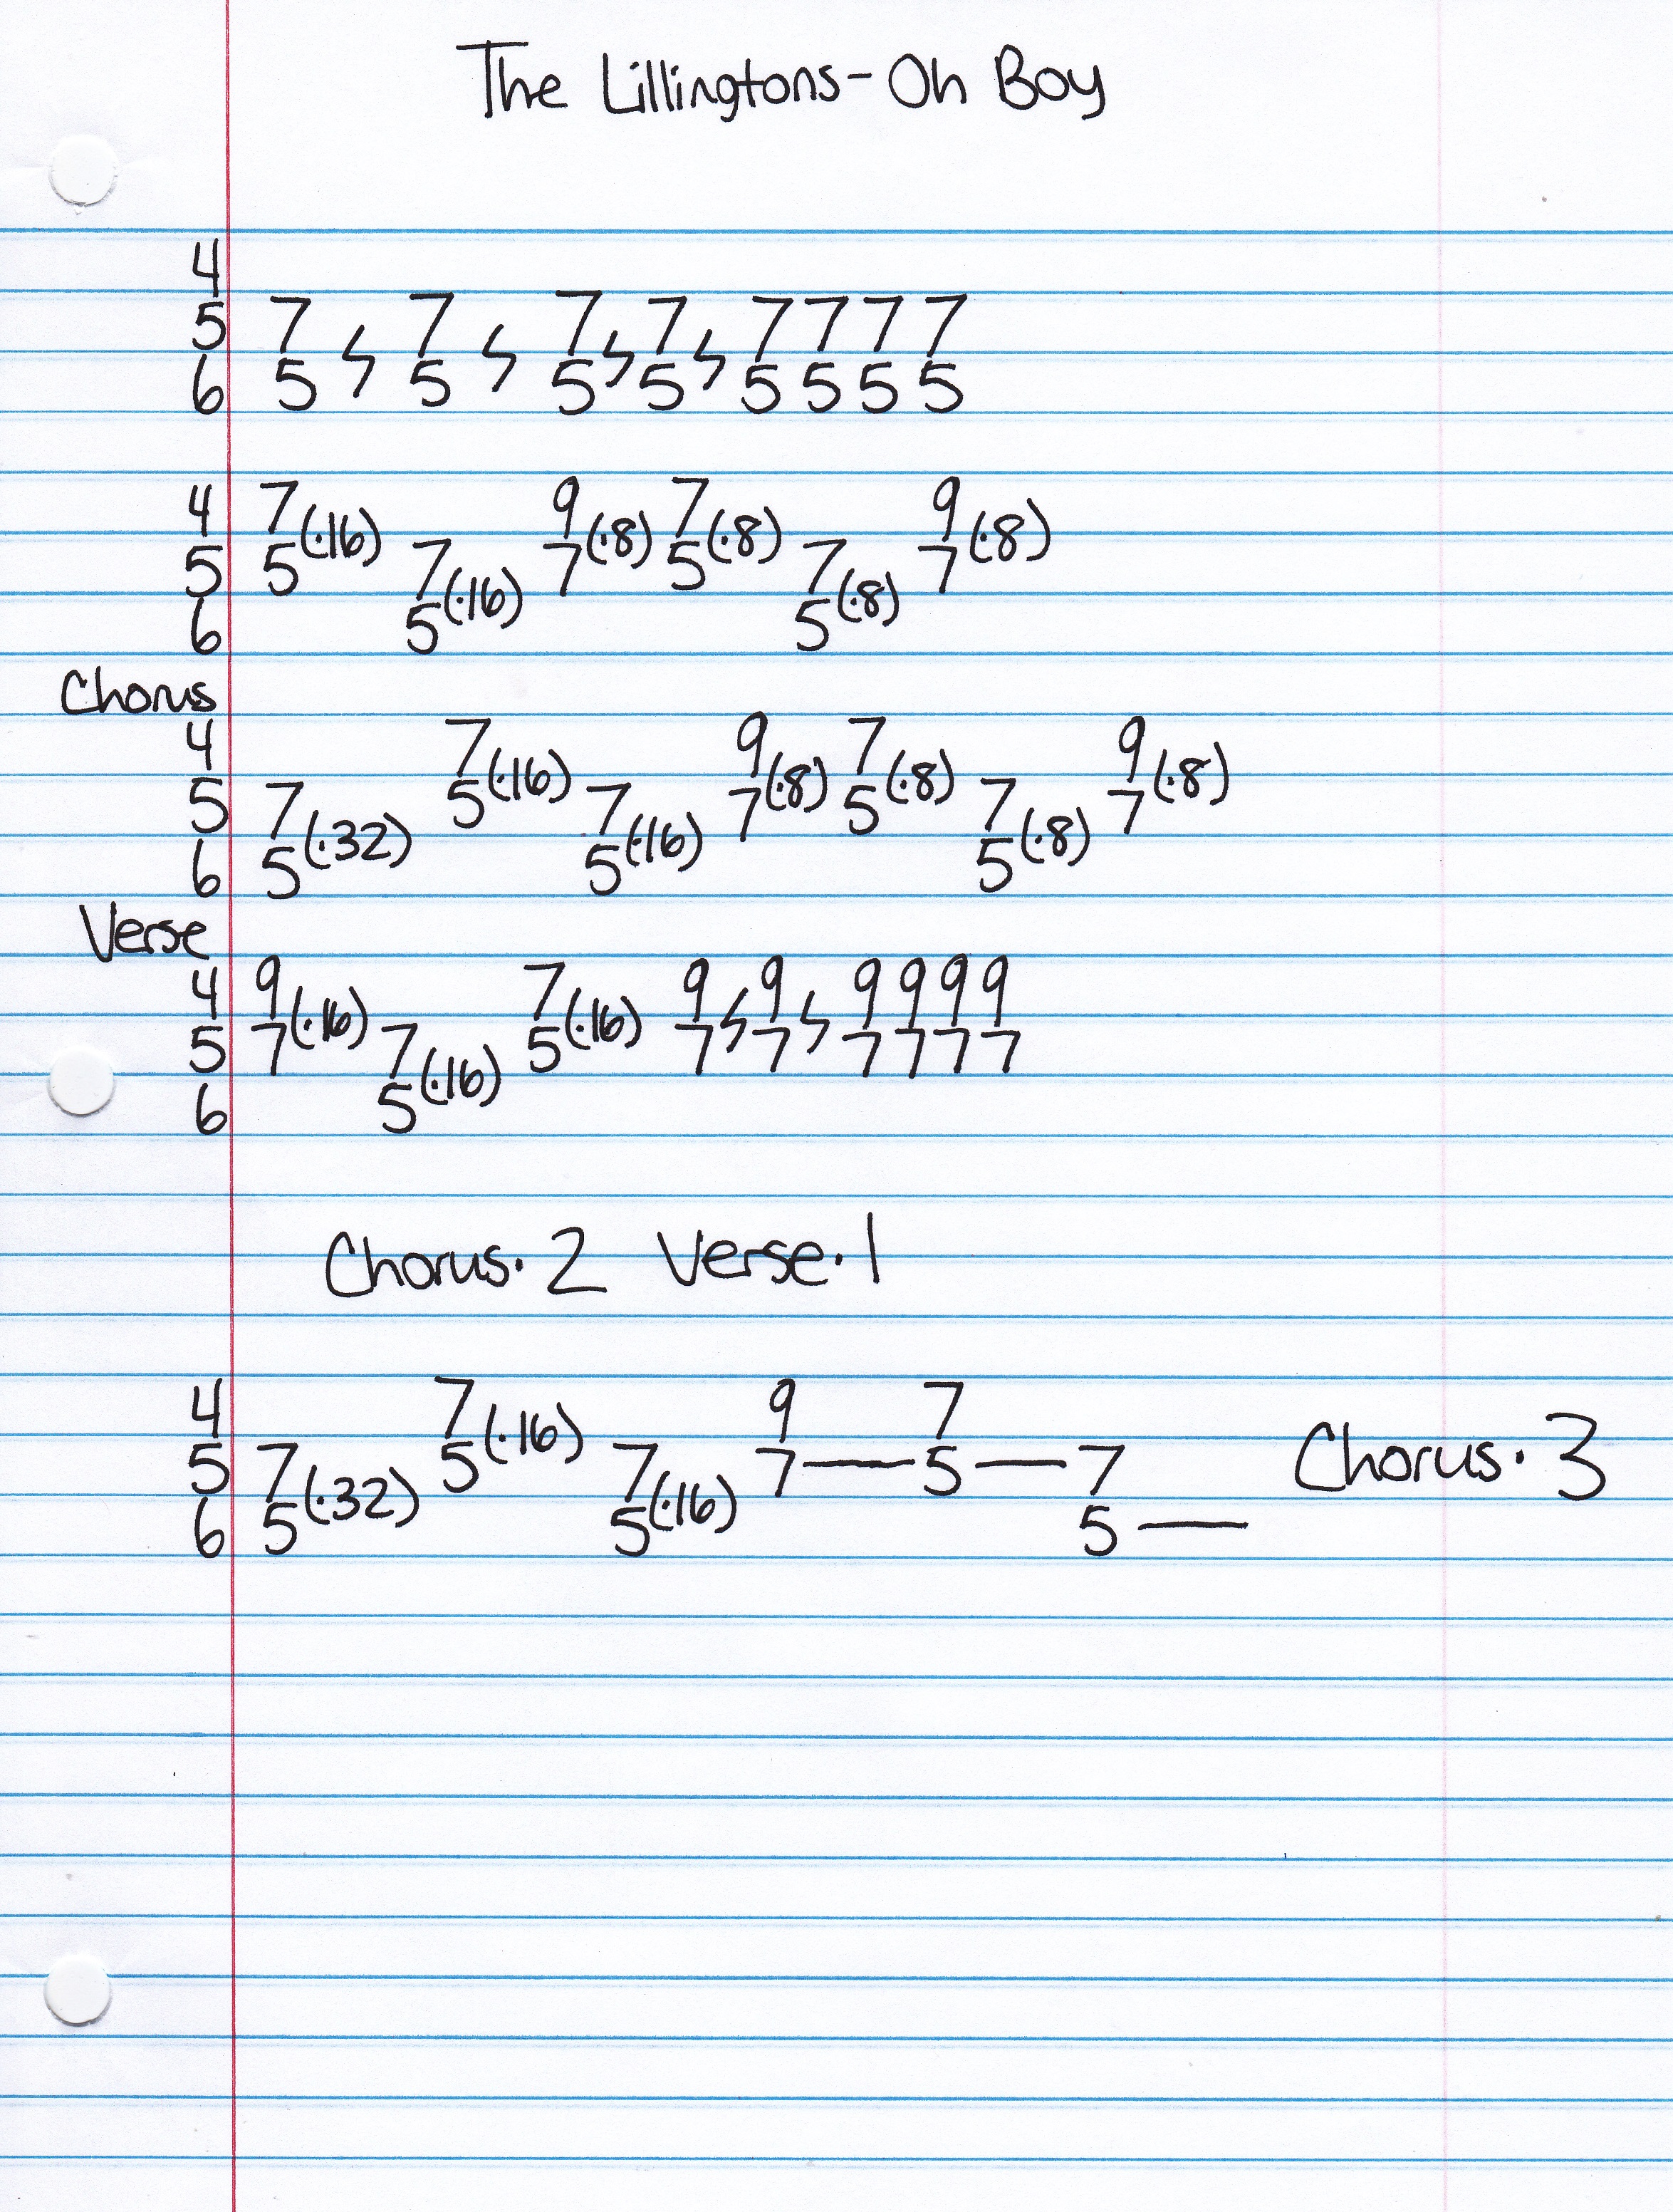 The Lillingtons - Oh Boy
4
5 7 ϟ 7 ϟ 7 ϟ 7 ϟ 7 7 7 7
6 5 5 5 5 5 5 5 5
4 7 (·16) 9 (·8) 7 (·8) 9 (·8)
5 5 7 (·16) 7 5 7 (·8) 7
6 5 5
Chorus
4 7 (·16) 9 (·8) 7 (·8) 9 (·8)
5 7 (·32) 5 7 (·16) 7 5 7 (·8) 7
6 5 5 5
Verse
4 9 (·16) 7 (·16) 9 ϟ 9 ϟ 9 9 9 9
5 7 7 (·16) 5 7 7 7 7 7 7
6 5
Chorus · 2 Verse · 1
4 7 (·16) 9 7
5 7 (·32) 5 7 (·16) 7 — 5 — 7 Chorus · 3
6 5 5 5 —